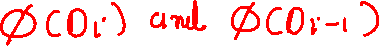 ∅(Oi) and ∅(Oi-1)